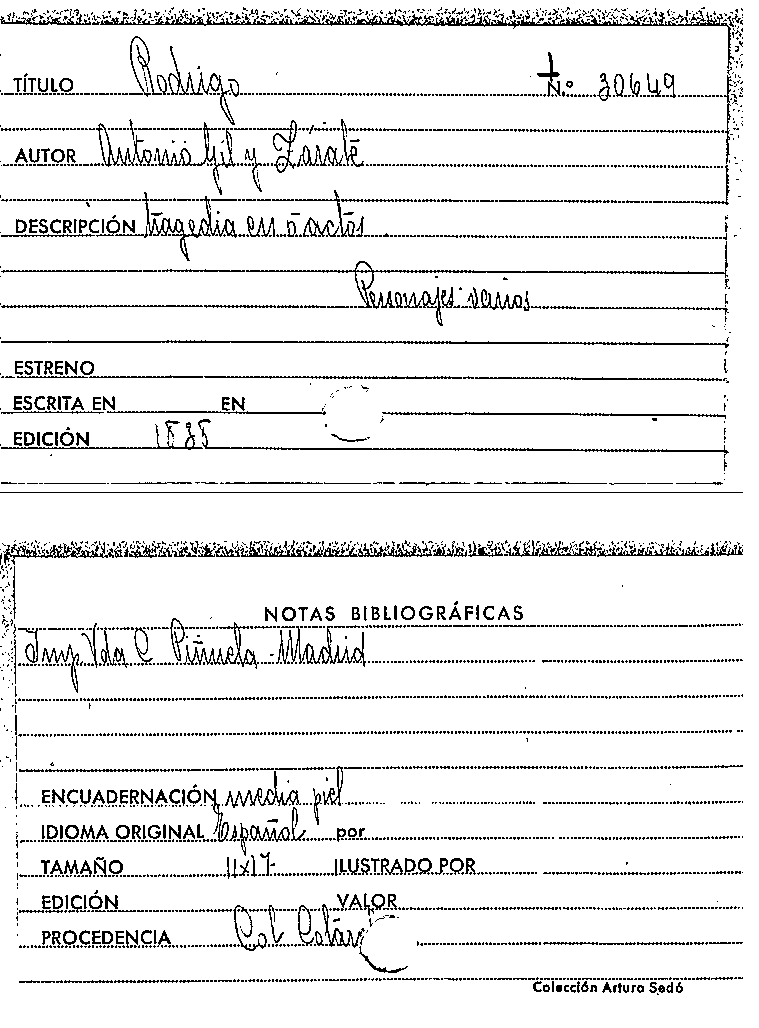 TÍTULO Rodrigo N.º 30649
AUTOR Antonio Gil y Zárate
DESCRIPCIÓN tragedia en 5 actos.
Personajes varios
ESTRENO
ESCRITA EN EN
EDICIÓN 1838
NOTAS BIBLIOGRÁFICAS
Imp. Vda C. Piñuela - Madrid
ENCUADERNACIÓN media piel
IDIOMA ORIGINAL Español por
TAMAÑO 11x17 ILUSTRADO POR
EDICIÓN VALOR
PROCEDENCIA Col.
Colección Arturo Sedó